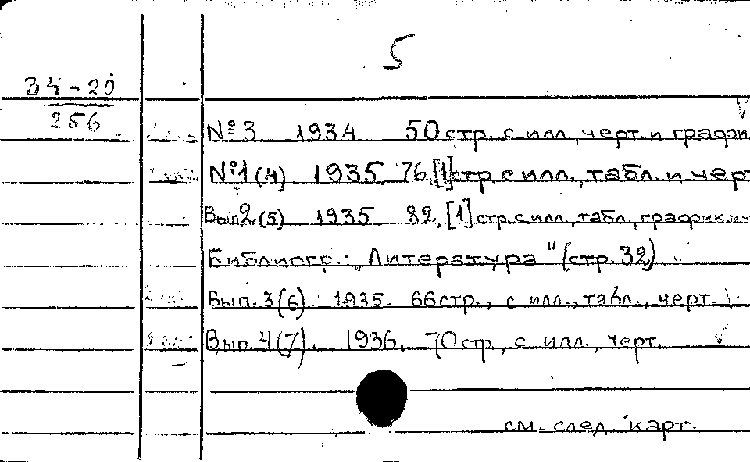 5
34-20
256
№ 3 1934 50 стр. с илл, черт. и графи
№1(4) 1935 76,[1]стр с илл., табл. и черт
Вып2.(5) 1935 82,[1] стр.с илл, табл, график.и
Библиогр.: „Литература" (стр. 32)
Вып. 3(6) 1935. 66 стр., с илл., табл., черт.
Вып. 4(7). 1936. 70 стр, с илл, черт.
см. след. карт.